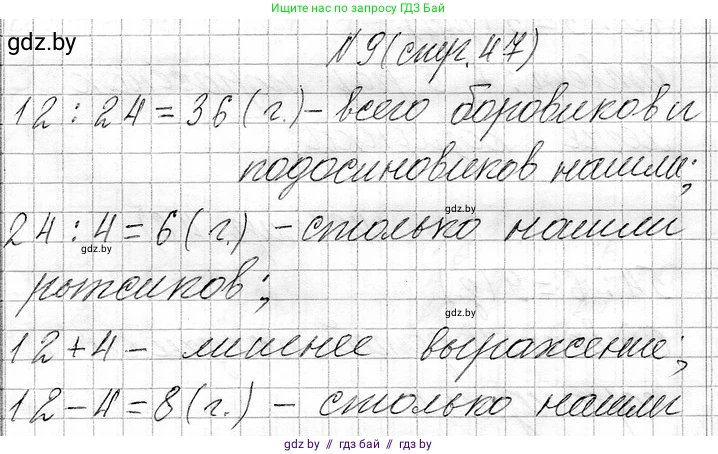 Ищите нас по запросу ГДЗ Бай
gdz.by
N 9 (стр. 47)
12 : 24 = 36 (г.) - всего боровиков и
подосиновиков нашли;
gdz.by
24 : 4 = 6 (г.) - столько нашли
gdz.by
рыжиков;
gdz.by
12 + 4 - лишнее выражение;
12 - 4 = 8 (г.) - столько нашли
gdz.by // гдз бай // гдз by